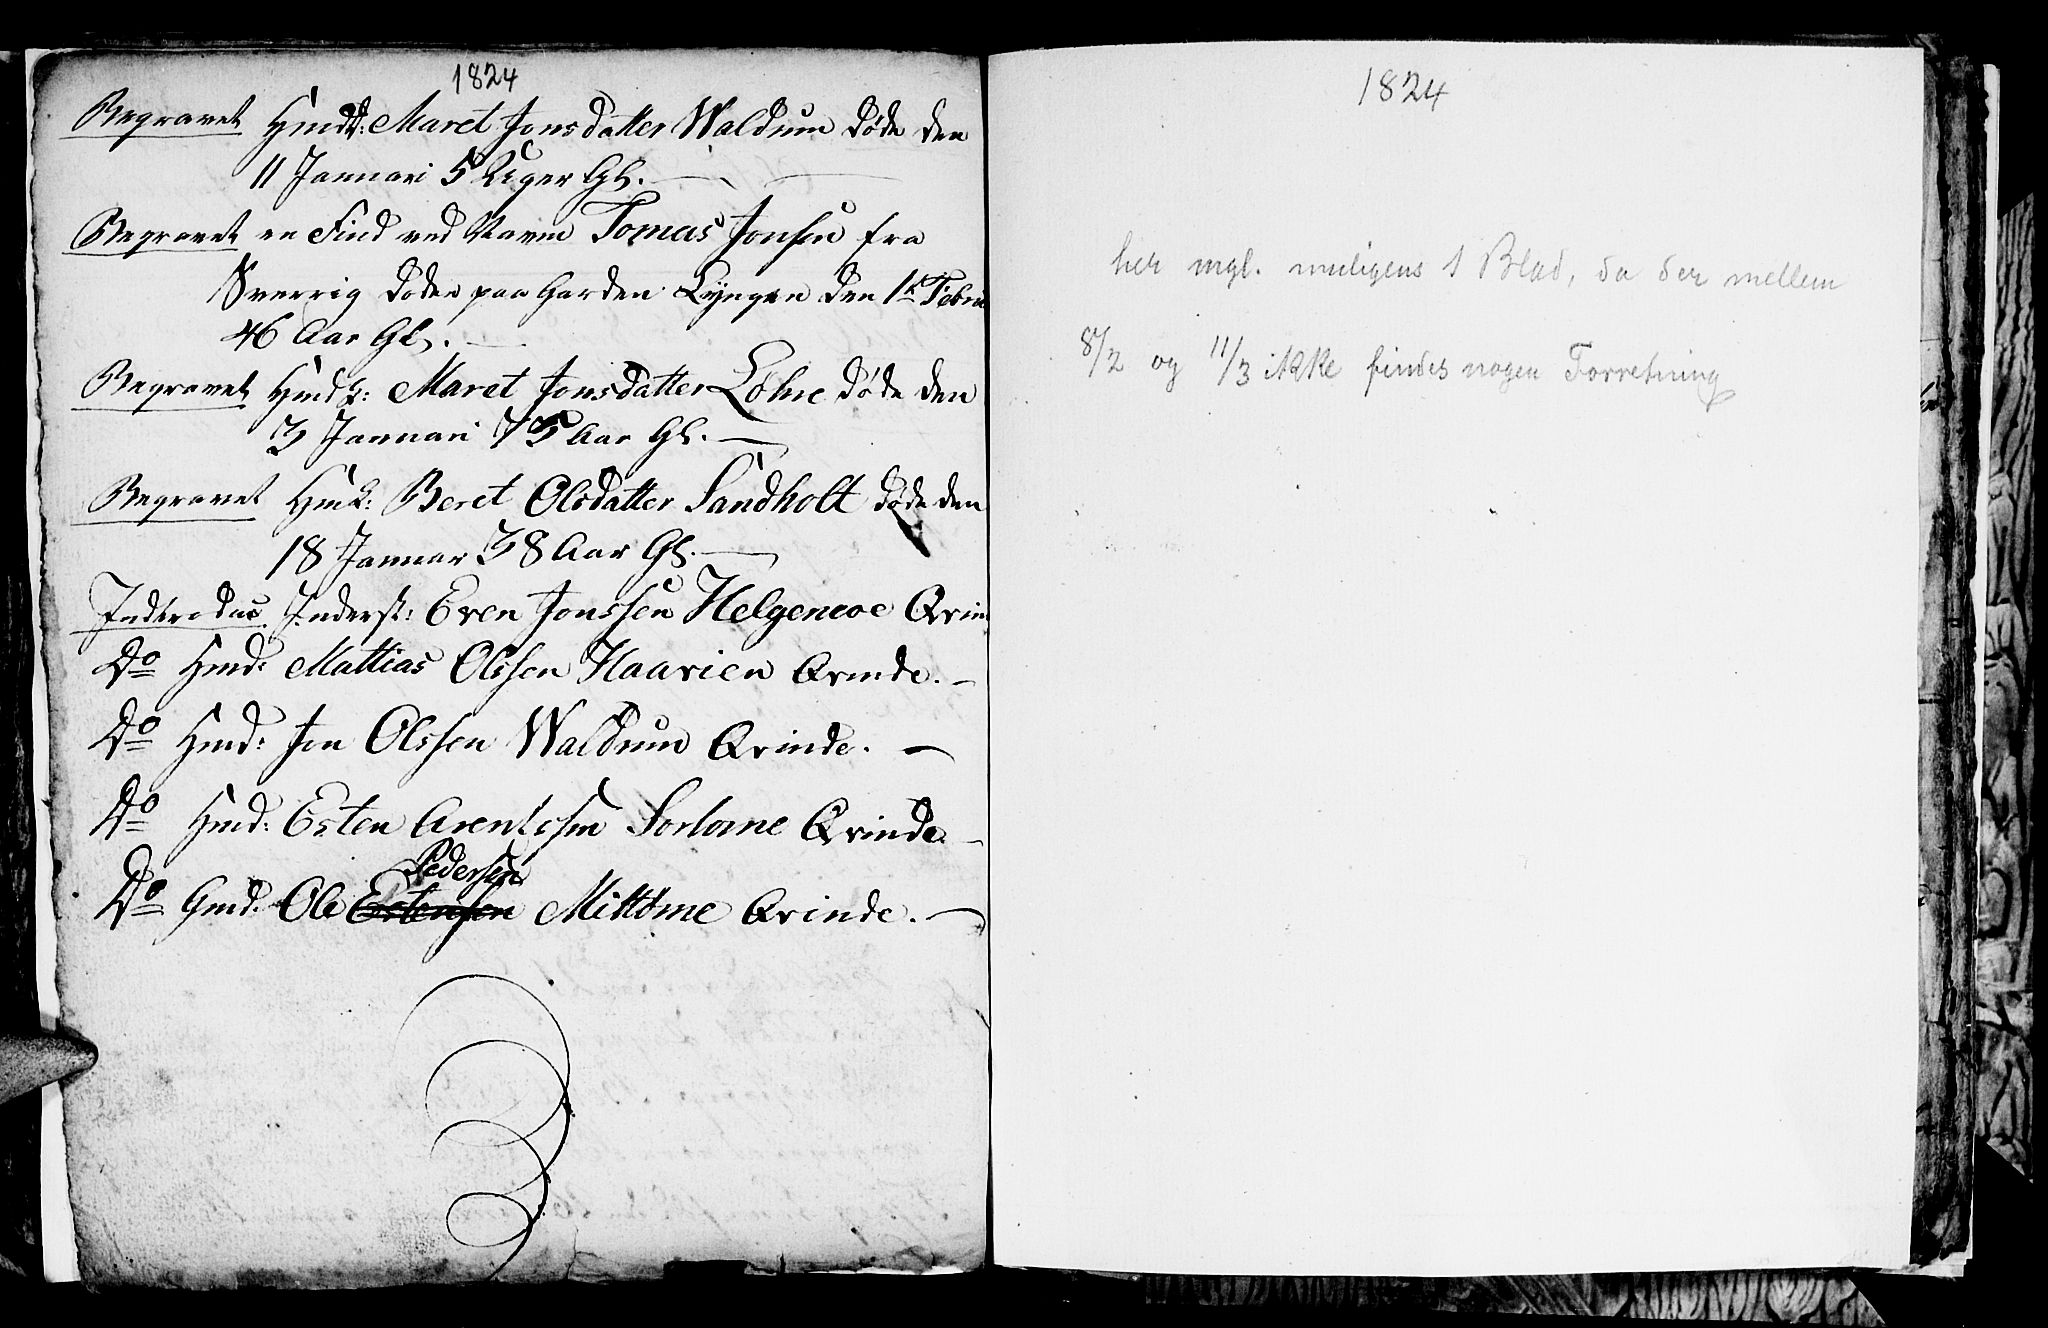 1824
Begravet Hmdt: Maret Jonsdatter Waldum døde den
11 Januari 5 Uger Gl.
Begravet en Find ved Navn Tomas Jonsen fra
Sverrig døde paa Garden Lyngen den 1te Febru
46 Aar Gl.
Begravet Hmdk: Maret Jonsdatter Løhre døde den
3 Januari 75 Aar Gl.
Begravet Hmk: Beret Olsdatter Sandholt døde den
18 Januar 38 Aar Gl.
Indtroduc Inderst: Even Jonssen Helgemoe Qvin
Do Hmd: Mattias Olssen Haarien Qvinde.
Do Hmd: Jon Olssen Waldum Qvinde.
Do Hmd: Esten Arentssen Sorløme Qvinde.
Pedersen
Do Gmd: Ole Estensen Mittøme Qvinde.
1824
her mgl. muligens 1 Blad, da der mellem
8/2 og 11/3 ikke findes nogen Forretning